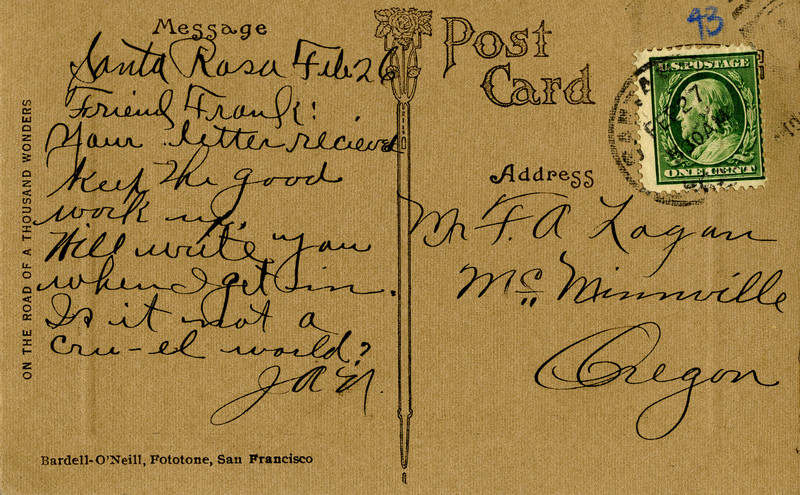 Message
Santa Rosa Feb 26
Friend Frank:
Your letter recieved
Keep the good
work up.
Will write you
when I get in.
Is it not a
cru-el world?
ON THE ROAD OF A THOUSAND WONDERS
Bardell-O'Neill, Fototone, San Francisco
Post
Card
93
U.S. POSTAGE
ONE CENT
SANTA
FEB 27
Address
Mr F. A Logan
Mc Minnville
Oregon